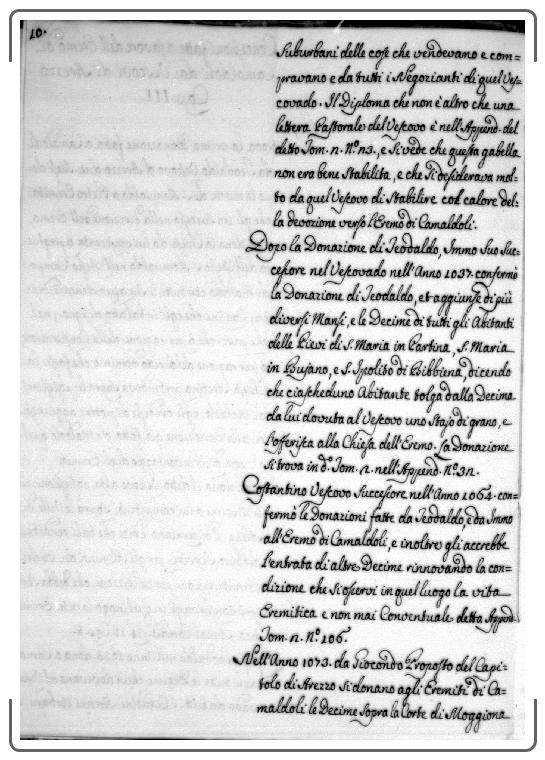 10.
Suburbani delle cose che vendevano e com-
pravano e da tutti i Negozianti di quel Ves-
covado. Il Diploma che non è altro che una
lettera Pastorale del Vescovo è nell'Append. del
detto Tom. n. N.º n3., e si vede che questa gabella
non era bene stabilita, e che si desiderava mol-
to da quel Vescovo di stabilire col calore del-
la devozione verso l'Eremo di Camaldoli.
Dopo la Donazione di Teodaldo, Immo suo suc-
cessore nel Vescovado nell'Anno 1037. confermò
la Donazione di Teodaldo, et aggiunse di più
diversi Mansi, e le Decime di tutti gli Abitanti
delle Pievi di S. Maria in Partina, S. Maria
in Bujano, e S. Ipolito di Bibbiena, dicendo
che ciascheduno Abitante tolga dalla Decima
da lui dovuta al Vescovo uno Stajo di grano, e
l'offerisca alla Chiesa dell'Eremo. La Donazione
si trova in d.º Tom. n. nell'Append. N.º 3n.
Costantino Vescovo Successore nell'Anno 1064. con-
fermò le Donazioni fatte da Teodaldo, e da Immo
all'Eremo di Camaldoli, e inoltre gli accrebbe
l'entrata di altre Decime rinnovando la con-
dizione che si osservi in quel luogo la vita
Eremitica e non mai Conventuale detta Append.
Tom. n. N.º 106.
Nell'Anno 1073. da Giocondo Proposto del Capi-
tolo di Arezzo si donano agli Eremiti di Ca-
maldoli le Decime sopra la Corte di Moggiona